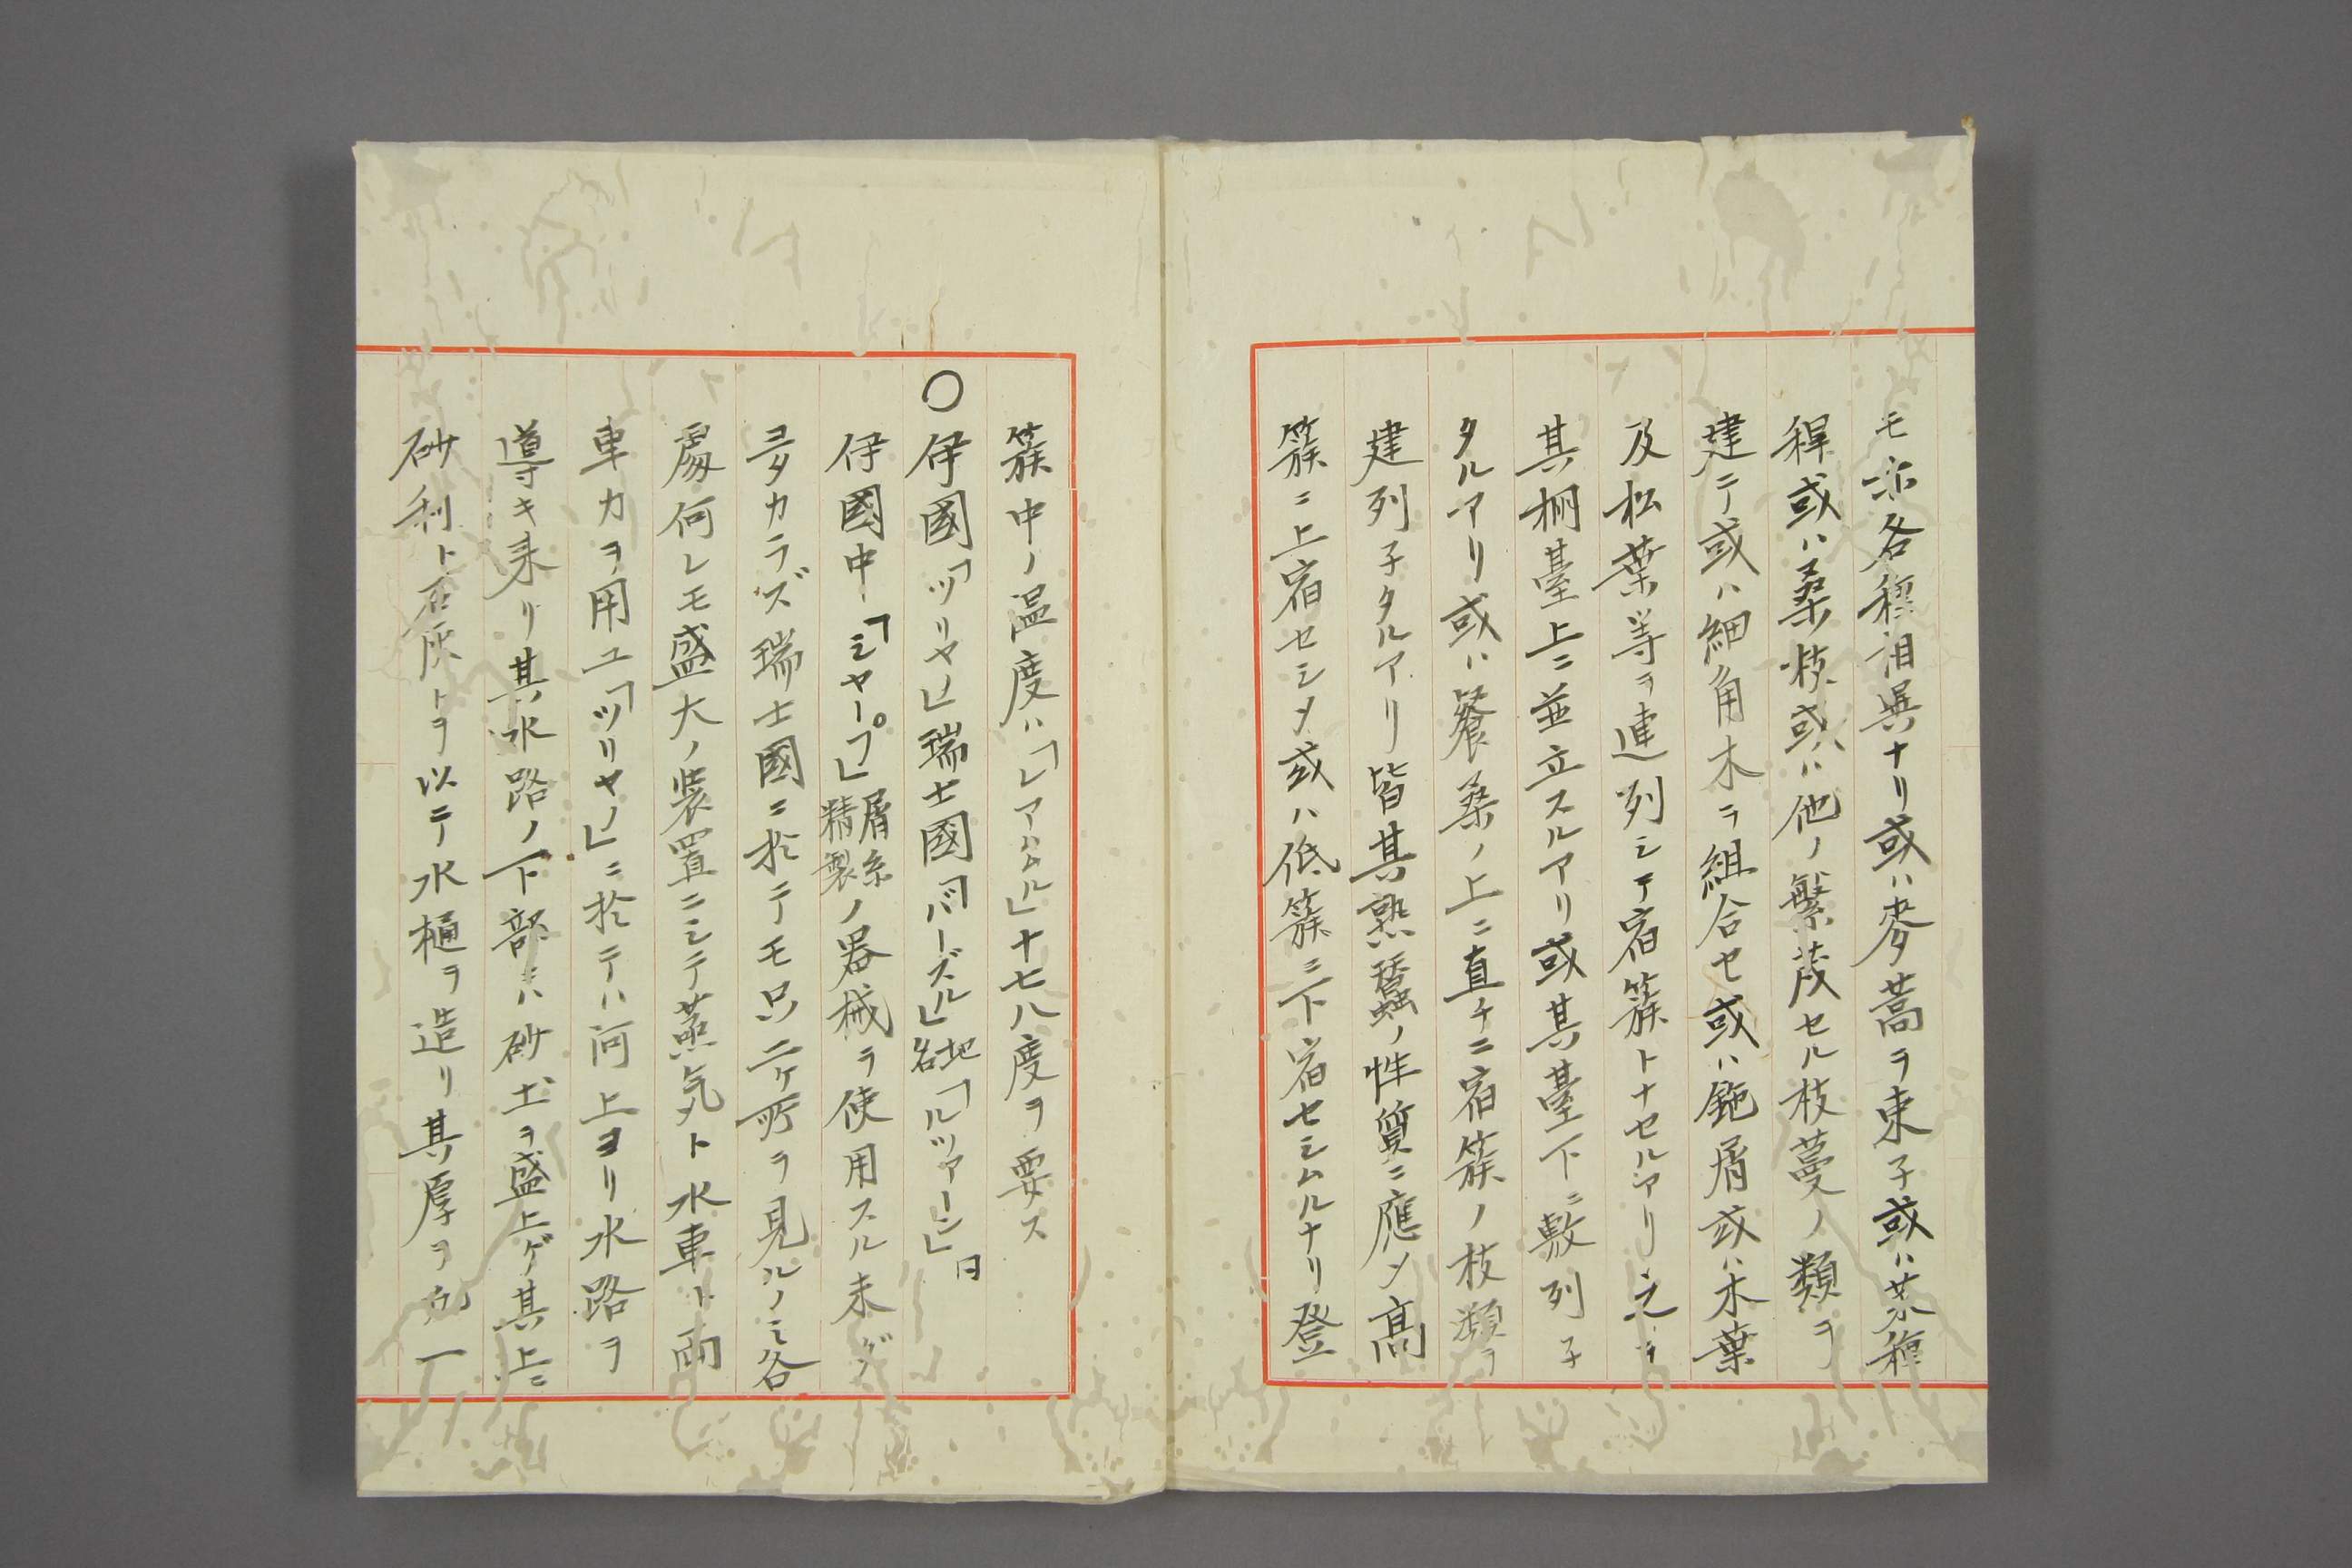 モ亦各種相異ナリ或ハ麥藁ヲ束子或ハ菜種
稈或ハ桑枝或ハ他ノ繁茂セル枝蔓ノ類ヲ
建テ或ハ細角木ヲ組合セ或ハ鉋屑或ハ木葉
及松葉等ヲ連列シテ宿簇トナセルアリ之ヲ
其棚臺上ニ並立スルアリ或其臺下ニ敷列子
タルアリ或ハ餐桑ノ上ニ直チニ宿簇ノ枝類ヲ
建列子タルアリ皆其熟蠶ノ性質ニ應メ高
簇ニ上宿セシメ或ハ低簇ニ下宿セシムルナリ登
簇中ノ温度ハ「レアハムル」十七八度ヲ要ス
○伊國「ツリヤノ」瑞士國「バーズル」地名「ルツアーン」日
伊國中「シャープ」屑糸精製ノ器械ヲ使用スル未ダ
ヲタカラズ瑞士國ニ於テモ只二ケ所ヲ見ルノミ各
處何レモ盛大ノ裝置ニシテ蒸気ト水車ト両
車力ヲ用ユ「ツリヤノ」ニ於テハ河上ヨリ水路ヲ
導キ来リ其水路ノ下部ニハ砂土ヲ盛上ゲ其上ニ
砂利ト石灰トヲ以テ水樋ヲ造リ其厚ヲ凡一